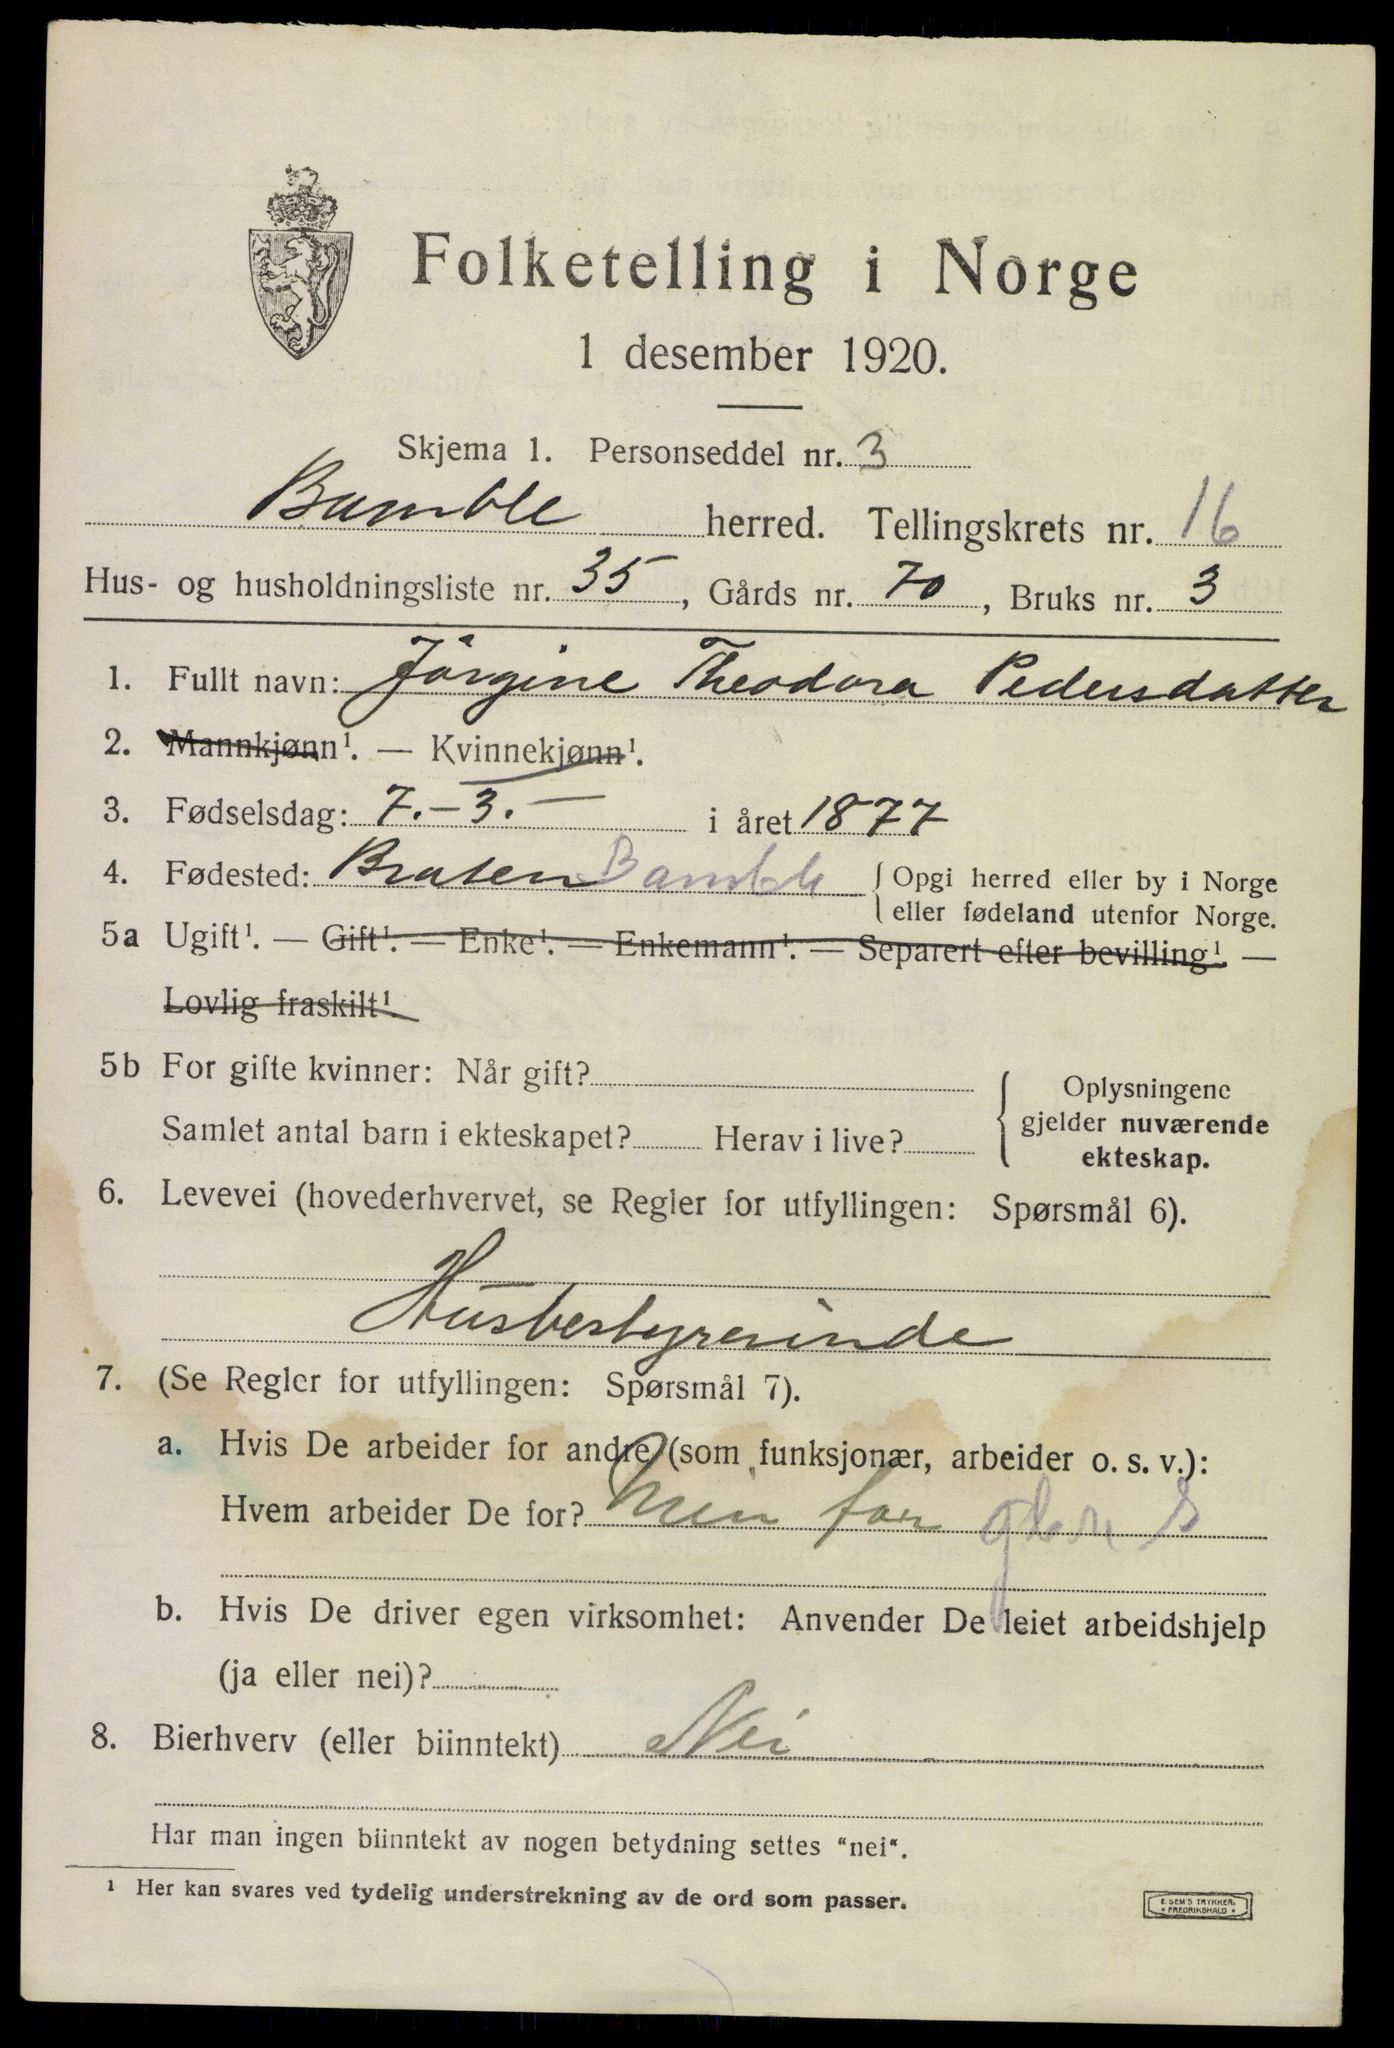 Folketelling i Norge
1 desember 1920.
Skjema 1. Personseddel nr. 3
Bamble herred. Tellingskrets nr. 16
Hus- og husholdningsliste nr. 35, Gårds nr. 70, Bruks nr. 3
1. Fullt navn: Jörgine Theodora Pedersdatter
2. Mannkjønn¹. — Kvinnekjønn¹.
3. Fødselsdag: 7.-3.- i året 1877
4. Fødested: Braten Bamble { Opgi herred eller by i Norge
eller fødeland utenfor Norge.
5a Ugift¹. — Gift¹. — Enke¹. — Enkemann¹. — Separert efter bevilling¹. —
Lovlig fraskilt¹
5b For gifte kvinner: Når gift?
Samlet antal barn i ekteskapet? Herav i live?
{ Oplysningene
gjelder nuværende
ekteskap.
6. Levevei (hovederhvervet, se Regler for utfyllingen: Spørsmål 6).
Husbestyrerinde
7. (Se Regler for utfyllingen: Spørsmål 7).
a. Hvis De arbeider for andre (som funksjonær, arbeider o. s. v.):
Hvem arbeider De for? Min far
b. Hvis De driver egen virksomhet: Anvender De leiet arbeidshjelp
(ja eller nei)?
8. Bierhverv (eller biinntekt) Nei
Har man ingen biinntekt av nogen betydning settes "nei".
¹ Her kan svares ved tydelig understrekning av de ord som passer.
E. SEM'S TRYKKERI
FREDRIKSHALD